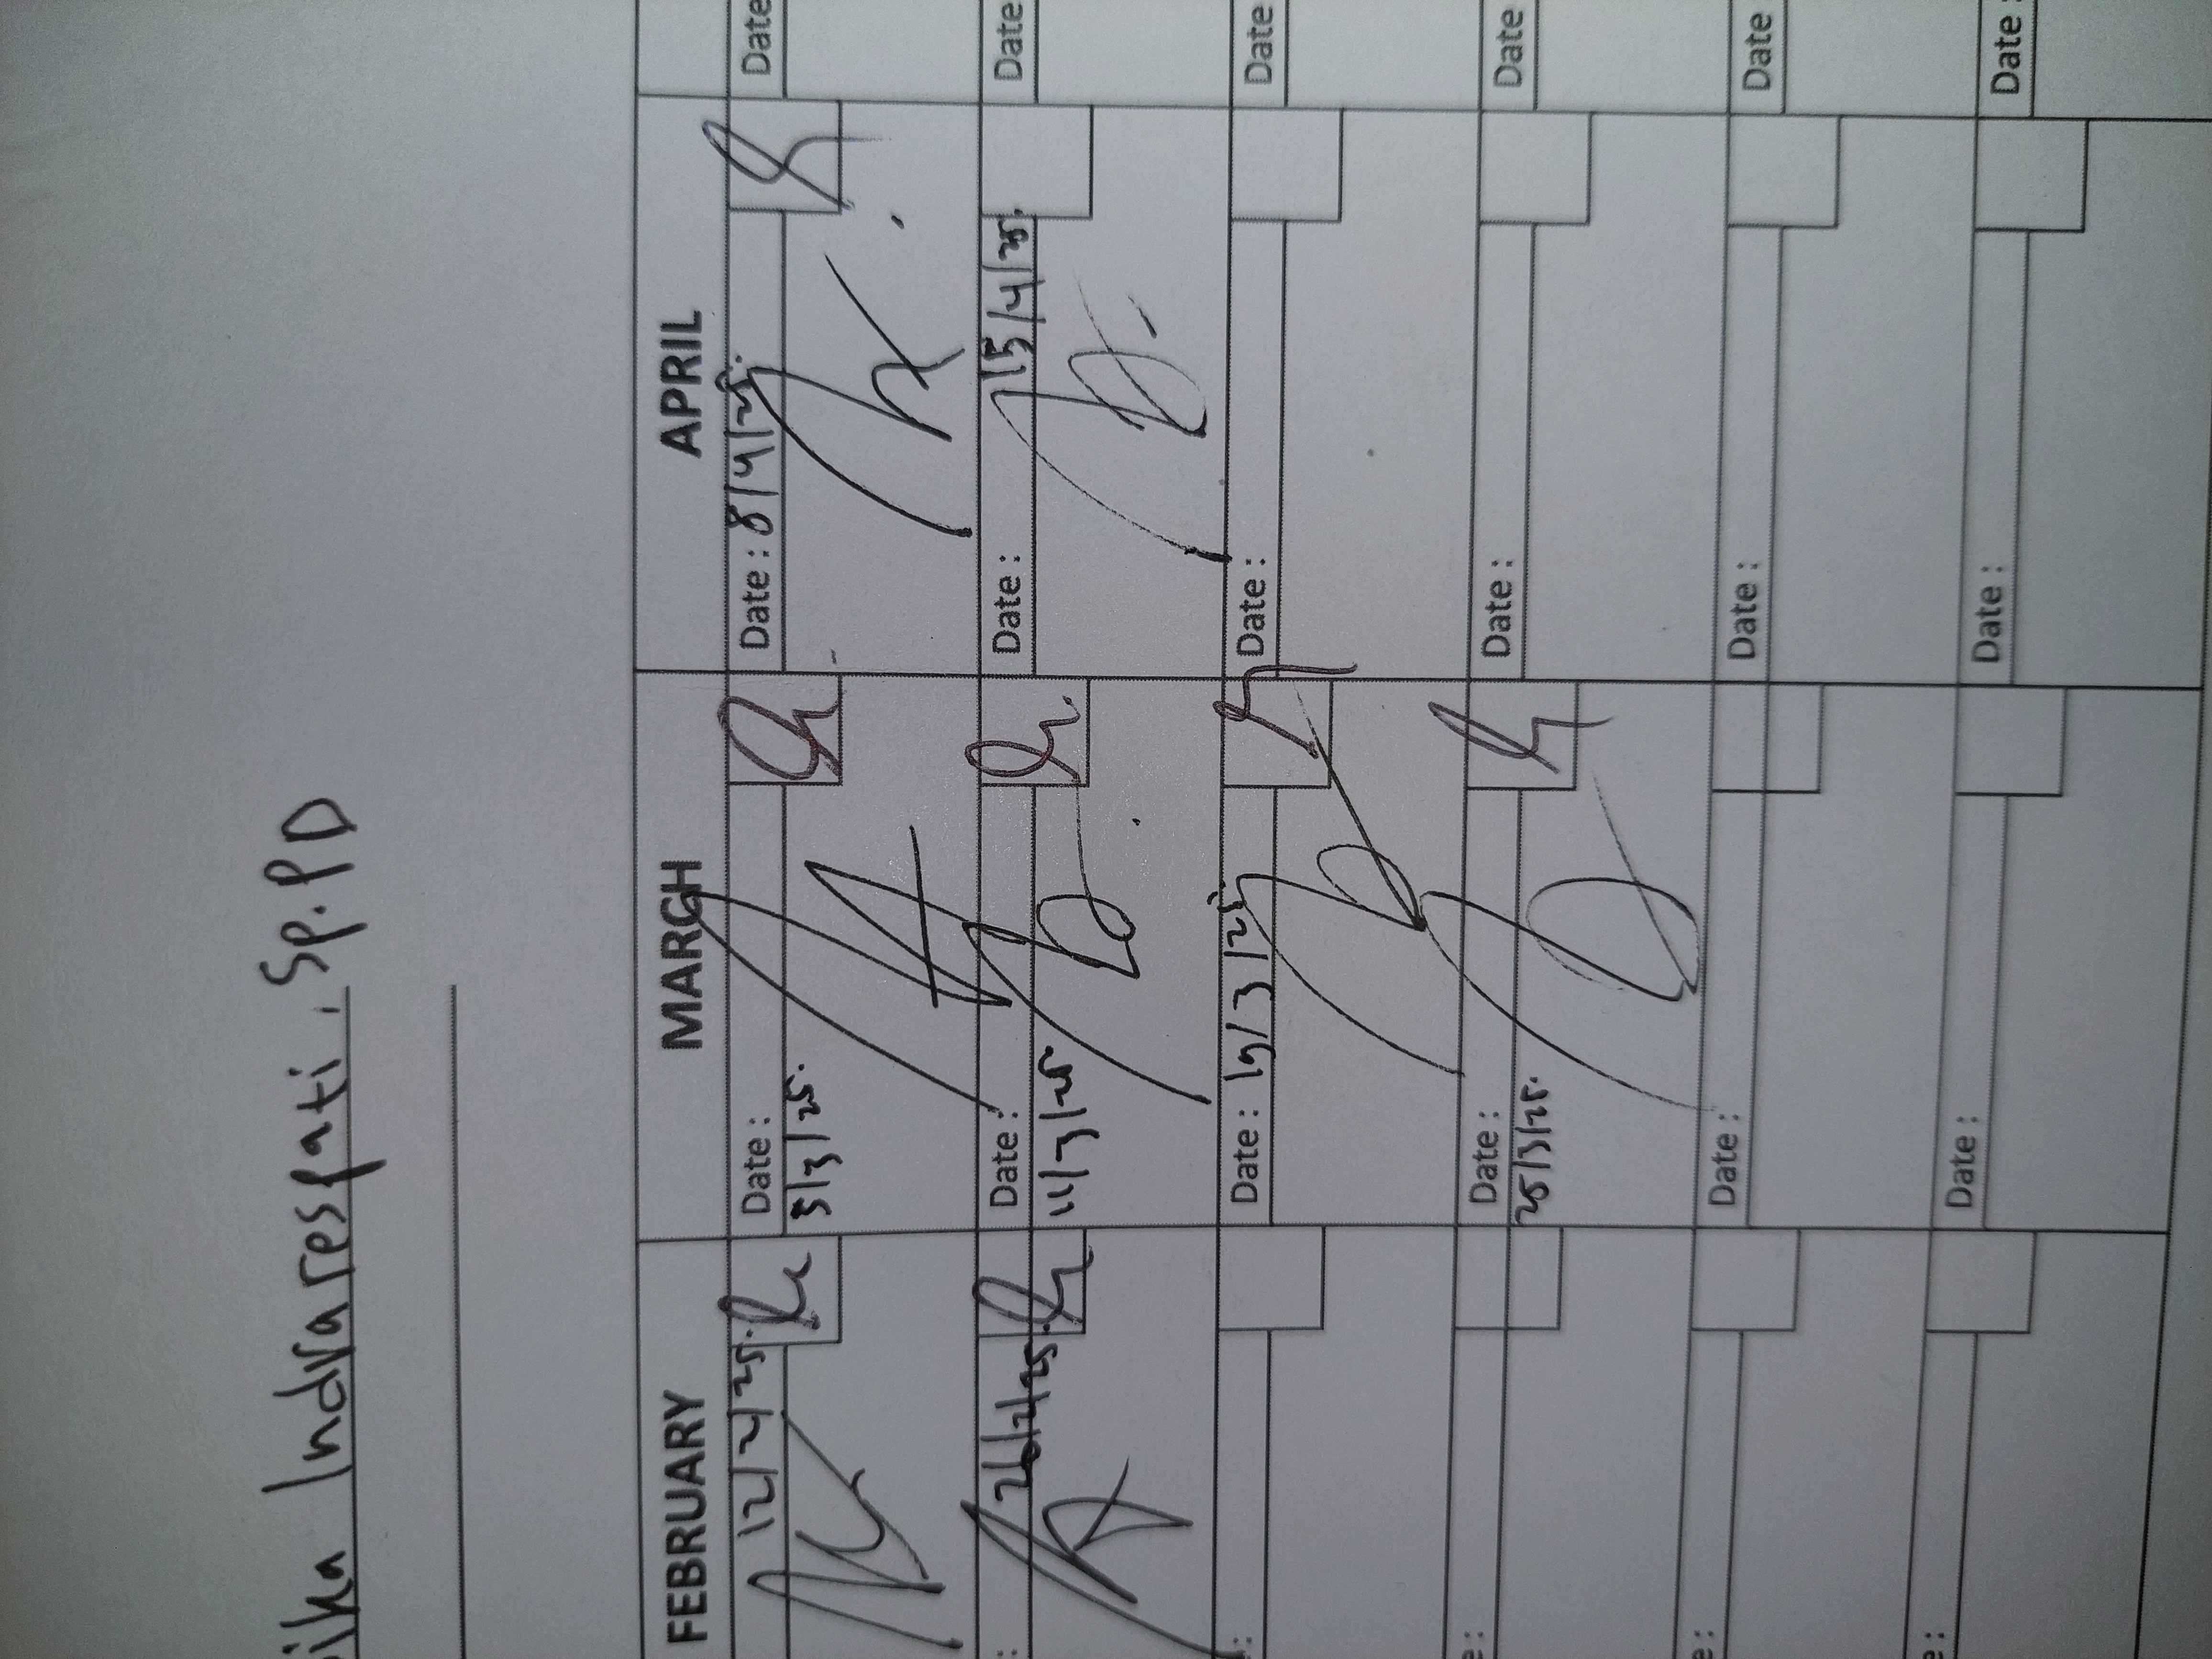 Indraresfati, Sp.PD
FEBRUARY MARCH APRIL
12/2/25. Date : Date : 8/4/25. Date
5/3/25.
26/2/25. Date : Date : 15/4/25. Date
11/3/25
Date : 19/3/25. Date : Date
Date : Date : Date
25/3/25.
Date : Date : Date
Date : Date : Date :